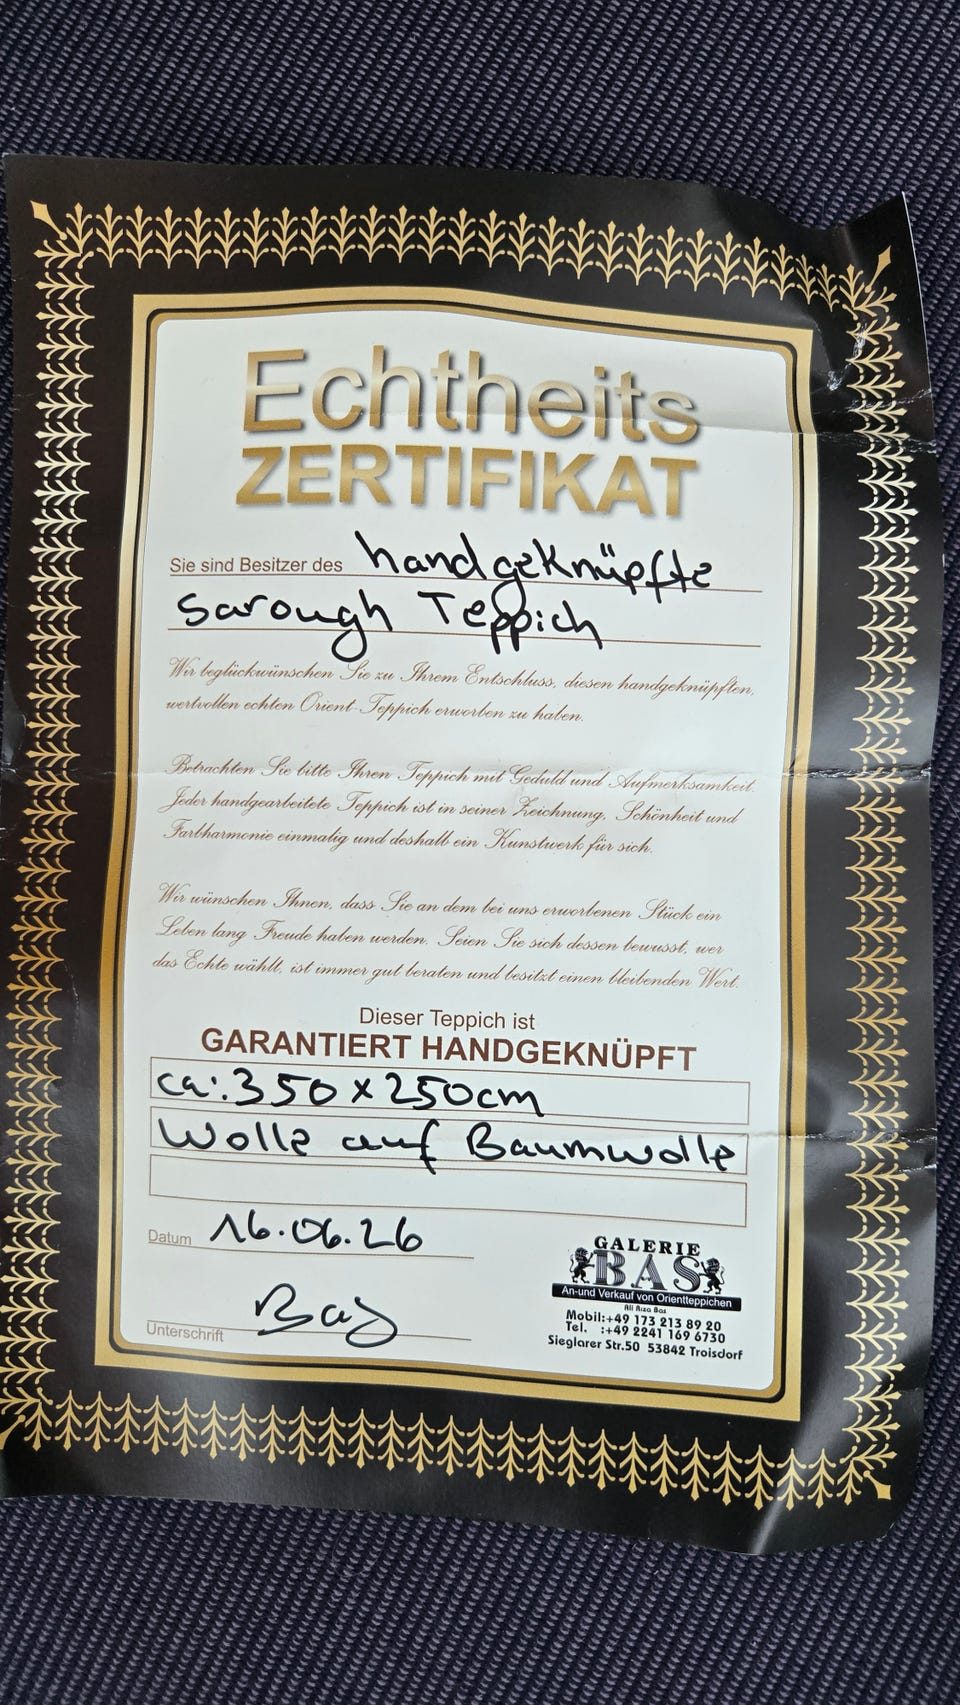 Echtheits
ZERTIFIKAT
Sie sind Besitzer des handgeknüpfte
Sarough Teppich
Wir beglückwünschen Sie zu Ihrem Entschluss, diesen handgeknüpften,
wertvollen echten Orient-Teppich erworben zu haben.
Betrachten Sie bitte Ihren Teppich mit Geduld und Aufmerksamkeit.
Jeder handgearbeitete Teppich ist in seiner Zeichnung, Schönheit und
Farbharmonie einmalig und deshalb ein Kunstwerk für sich.
Wir wünschen Ihnen, dass Sie an dem bei uns erworbenen Stück ein
Leben lang Freude haben werden. Seien Sie sich dessen bewusst, wer
das Echte wählt, ist immer gut beraten und besitzt einen bleibenden Wert.
Dieser Teppich ist
GARANTIERT HANDGEKNÜPFT
ca: 350 x 250cm
Wolle auf Baumwolle
Datum 16.06.26
Unterschrift Bas
GALERIE
BAS
An-und Verkauf von Orientteppichen
Ali Riza Bas
Mobil:+49 173 213 89 20
Tel. :+49 2241 169 6730
Sieglarer Str.50 53842 Troisdorf